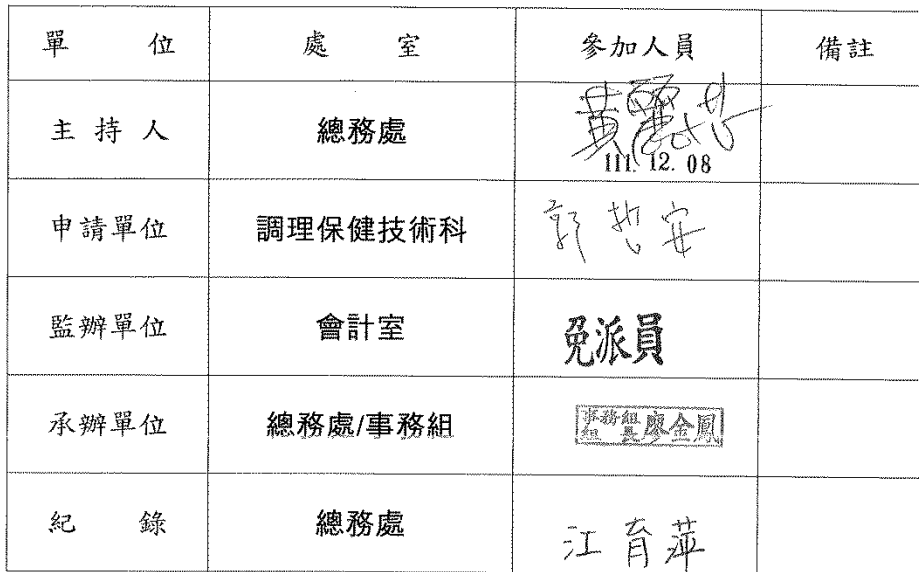 單 位 處 室 參加人員 備註
主 持 人 總務處 黃麗
111. 12. 08
申請單位 調理保健技術科 郭哲安
監辦單位 會計室 免派員
承辦單位 總務處/事務組 事務組組長廖金鳳
紀 錄 總務處 江育萍